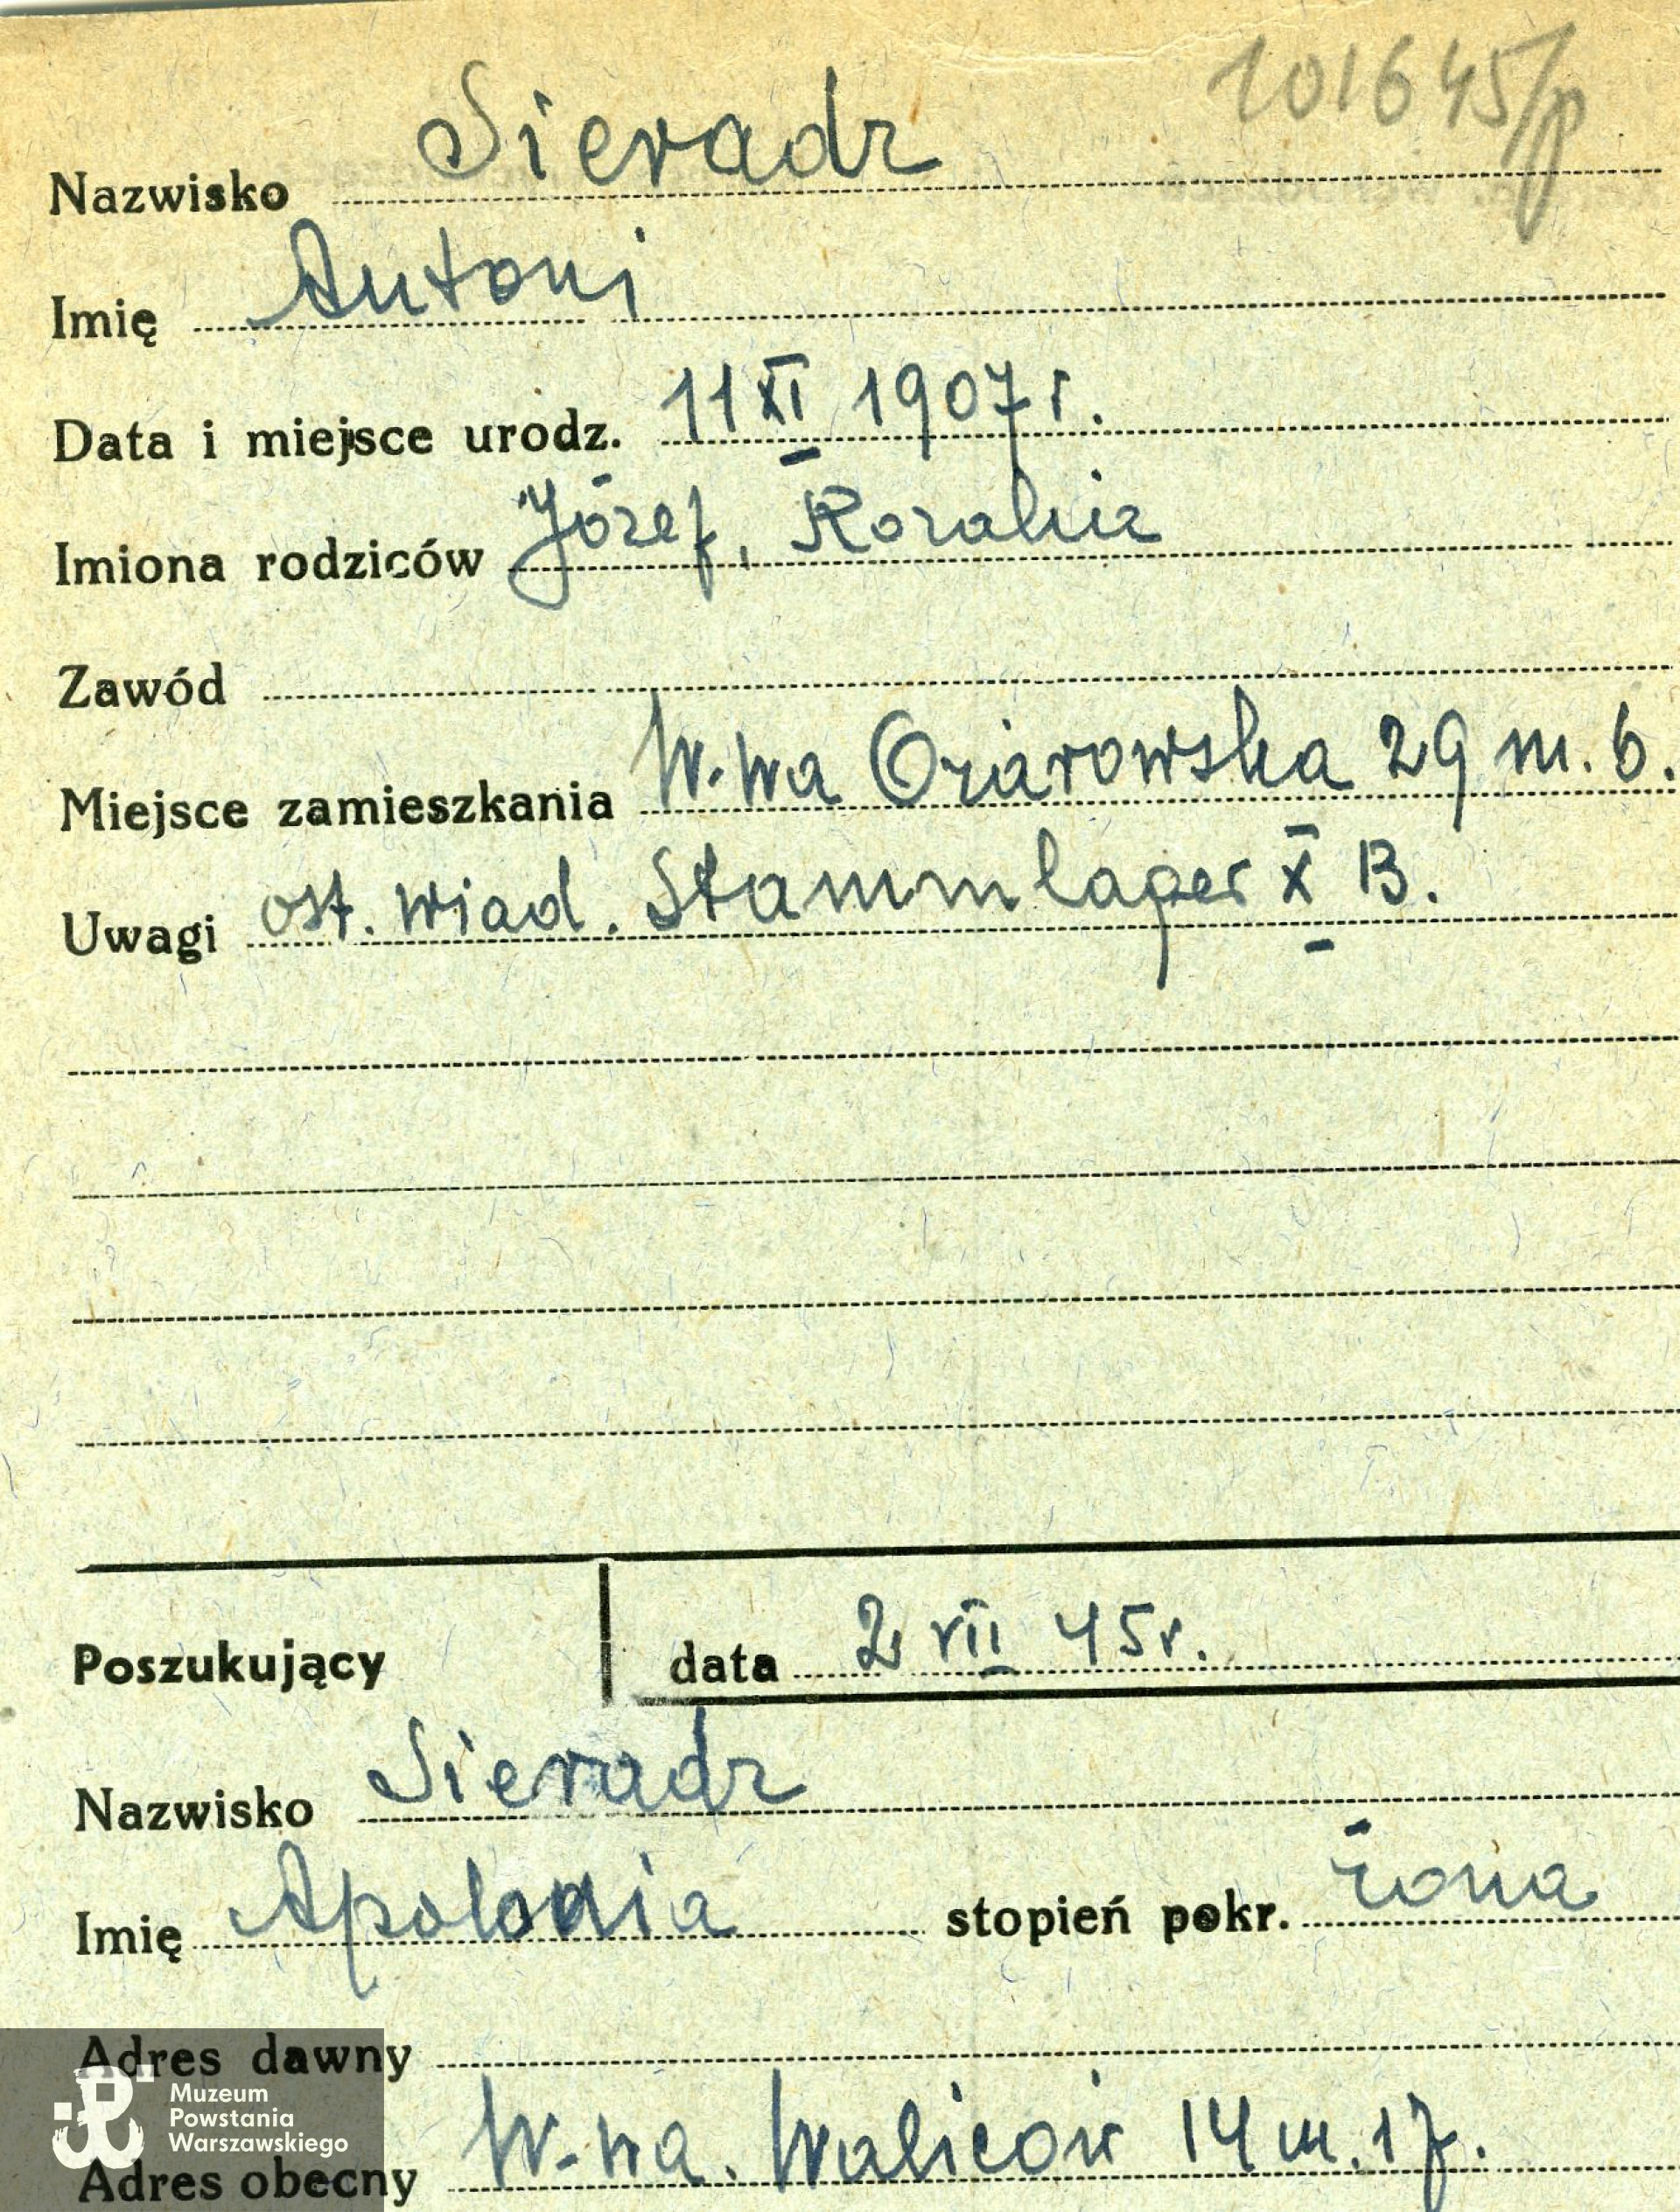 101645/p
Nazwisko Sieradz
Imię Antoni
Data i miejsce urodz. 11 XI 1907 r.
Imiona rodziców Józef, Rozalia
Zawód
Miejsce zamieszkania W-wa Ożarowska 29 m. 6.
Uwagi ost. wiad. Stammlager X B.
Poszukujący data 2 VII 45 r.
Nazwisko Sieradz
Imię Apolonia stopień pokr. żona
Adres dawny
Muzeum
Powstania
Warszawskiego
Adres obecny W-wa. Walicow 14 m. 17.